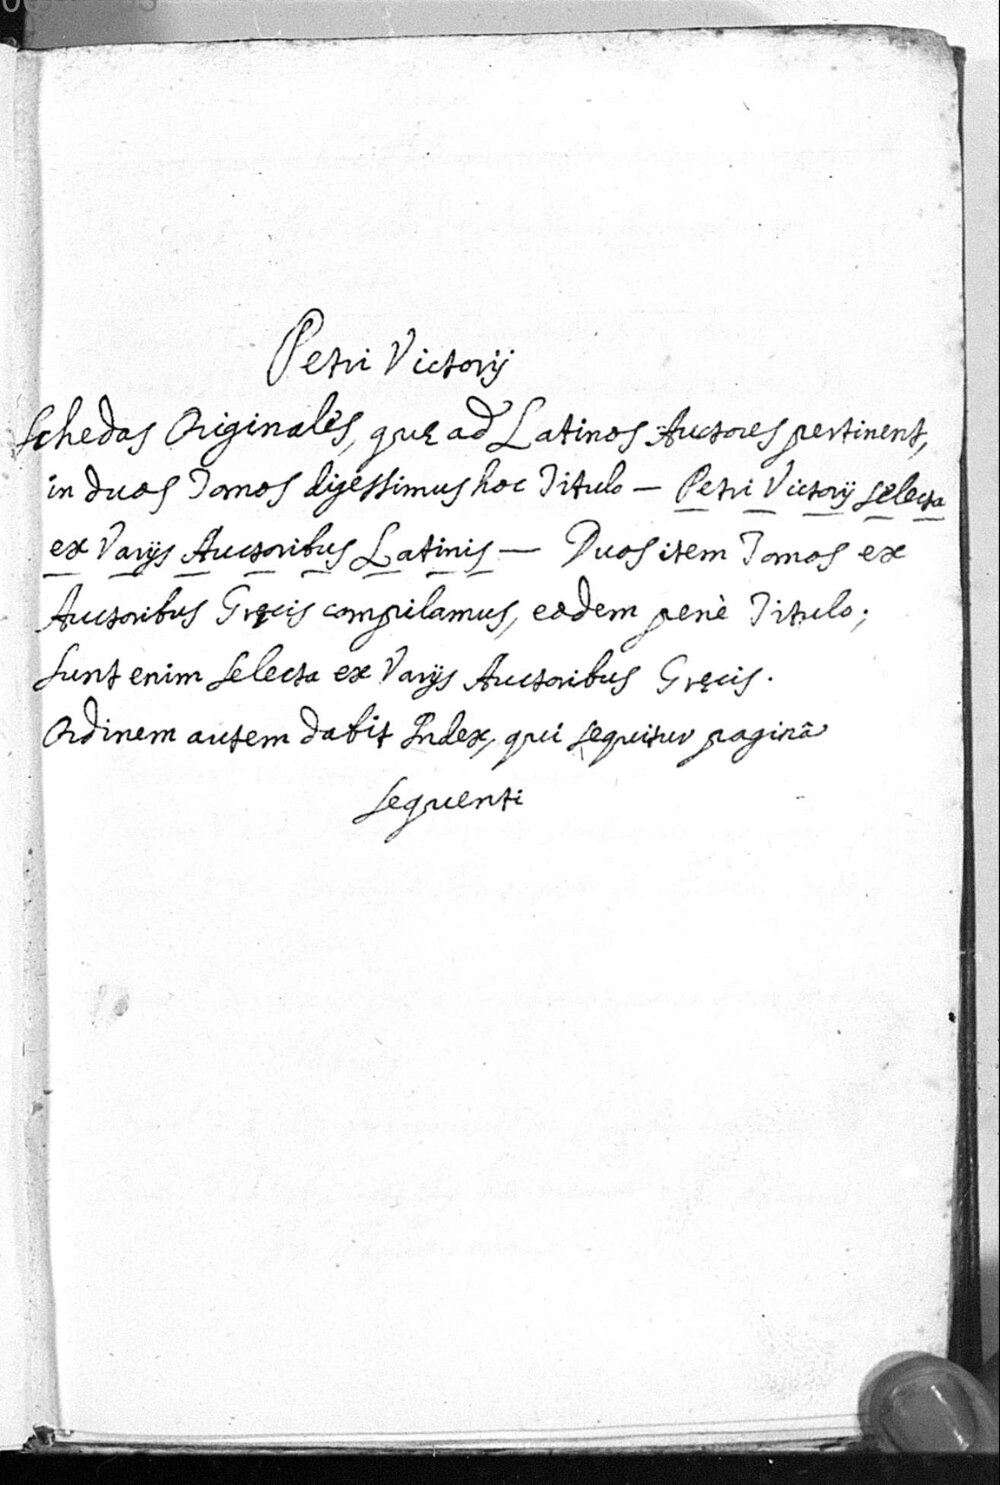 Petri Victorij
Schedas Originales, quę ad Latinos Auctores pertinent,
in duos Tomos digessimus hoc Titulo — Petri Victorij selecta
ex Varijs Auctoribus Latinis — Duos item Tomos ex
Auctoribus Gręcis compilamus, eodem penè Titulo;
sunt enim selecta ex Varijs Auctoribus Gręcis.
Ordinem autem dabit Index, qui sequitur paginâ
sequenti